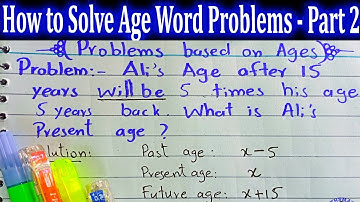 How to Solve Age Word Problems - Part 2
Problems based on Ages
Problem:- Ali's Age after 15
years will be 5 times his age
5 years back. What is Ali's
Present age ?
lution: Past age: x-5
Present age: x
Future age: x+15